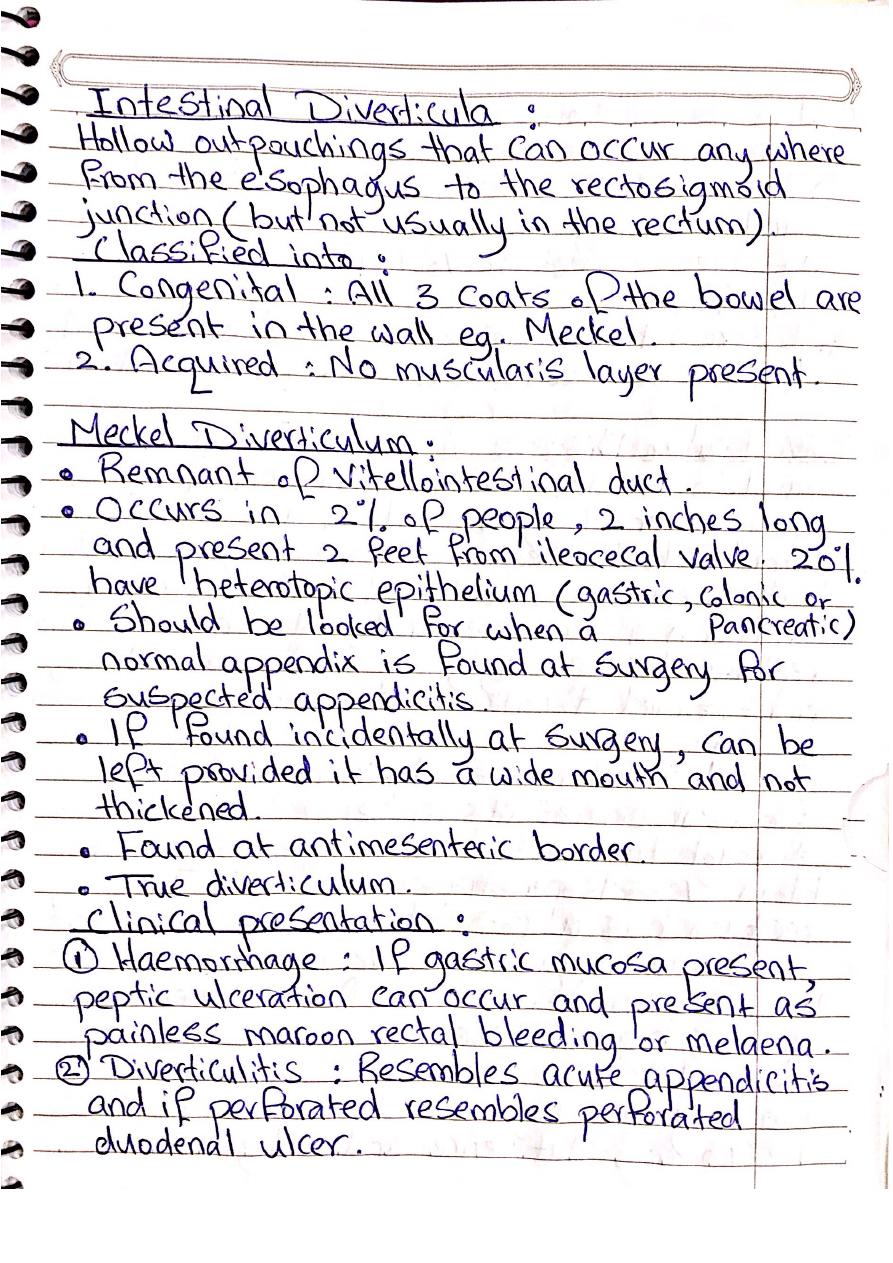 Intestinal Diverticula :
Hollow outpouchings that can occur any where
from the esophagus to the rectosigmoid
junction (but not usually in the rectum).
Classified into :
1. Congenital : All 3 coats of the bowel are
present in the wall eg. Meckel.
2. Acquired : No muscularis layer present.
Meckel Diverticulum :
• Remnant of vitellointestinal duct.
• Occurs in 2% of people, 2 inches long
and present 2 feet from ileocecal valve. 20%
have heterotopic epithelium (gastric, colonic or
pancreatic)
• Should be looked for when a
normal appendix is found at surgery for
suspected appendicitis.
• If found incidentally at surgery, can be
left provided it has a wide mouth and not
thickened.
• Found at antimesenteric border.
• True diverticulum.
Clinical presentation :
① Haemorrhage : If gastric mucosa present,
peptic ulceration can occur and present as
painless maroon rectal bleeding or melaena.
② Diverticulitis : Resembles acute appendicitis
and if perforated resembles perforated
duodenal ulcer.